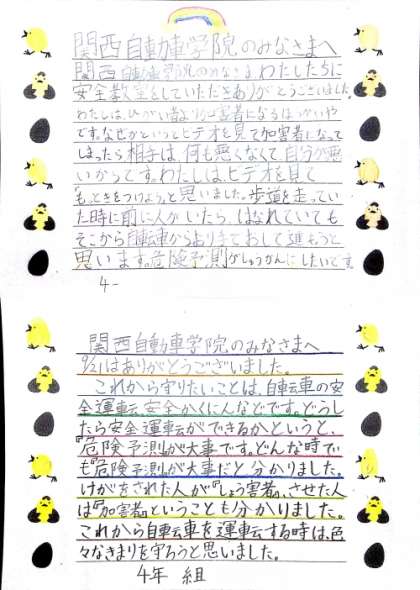 関西自動車学院のみなさまへ
関西自動車学院のみなさま、わたしたちに
安全教室をしていただきありがとうございました。
わたしは、ひがい者より加害者になるほうがいや
です。なぜかというとビデオを見て加害者になって
しまったら相手は、何も悪くなくて、自分が悪
いからです。わたしは、ビデオを見て
もっときをつけようと思いました。歩道を走ってい
た時に前に人がいたら、はなれていても
そこから自転車からおりておして進もうと
思います。危険予測がしゅうかんにしたいです。
4-
関西自動車学院のみなさまへ
9/21はありがとうございました。
これから守りたいことは、自転車の安
全運転、安全かくにんなどです。どうし
たら安全運転ができるかというと、
『危険予測』が大事です。どんな時で
も『危険予測』が大事だと分かりました。
けがをされた人が『しょう害者』、させた人
は『加害者』ということも分かりました。
これから自転車を運転する時は、色
々なきまりを守ろうと思いました。
4年 組